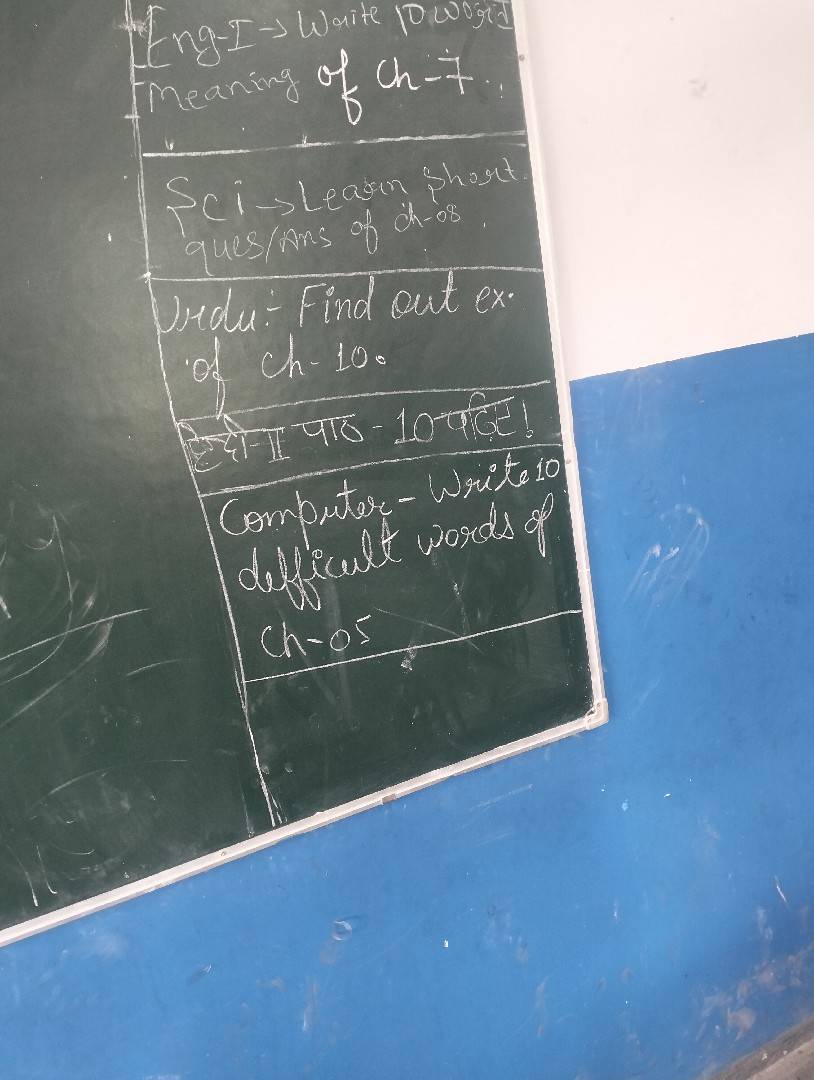 Eng-I → Write 10 word
Meaning of Ch-7.
Sci → Learn Short
ques/Ans of ch-08.
Urdu:- Find out ex.
of Ch-10.
हिन्दी-II पाठ-10 पढ़िए!
Computer - Write 10
defficult words of
Ch-05